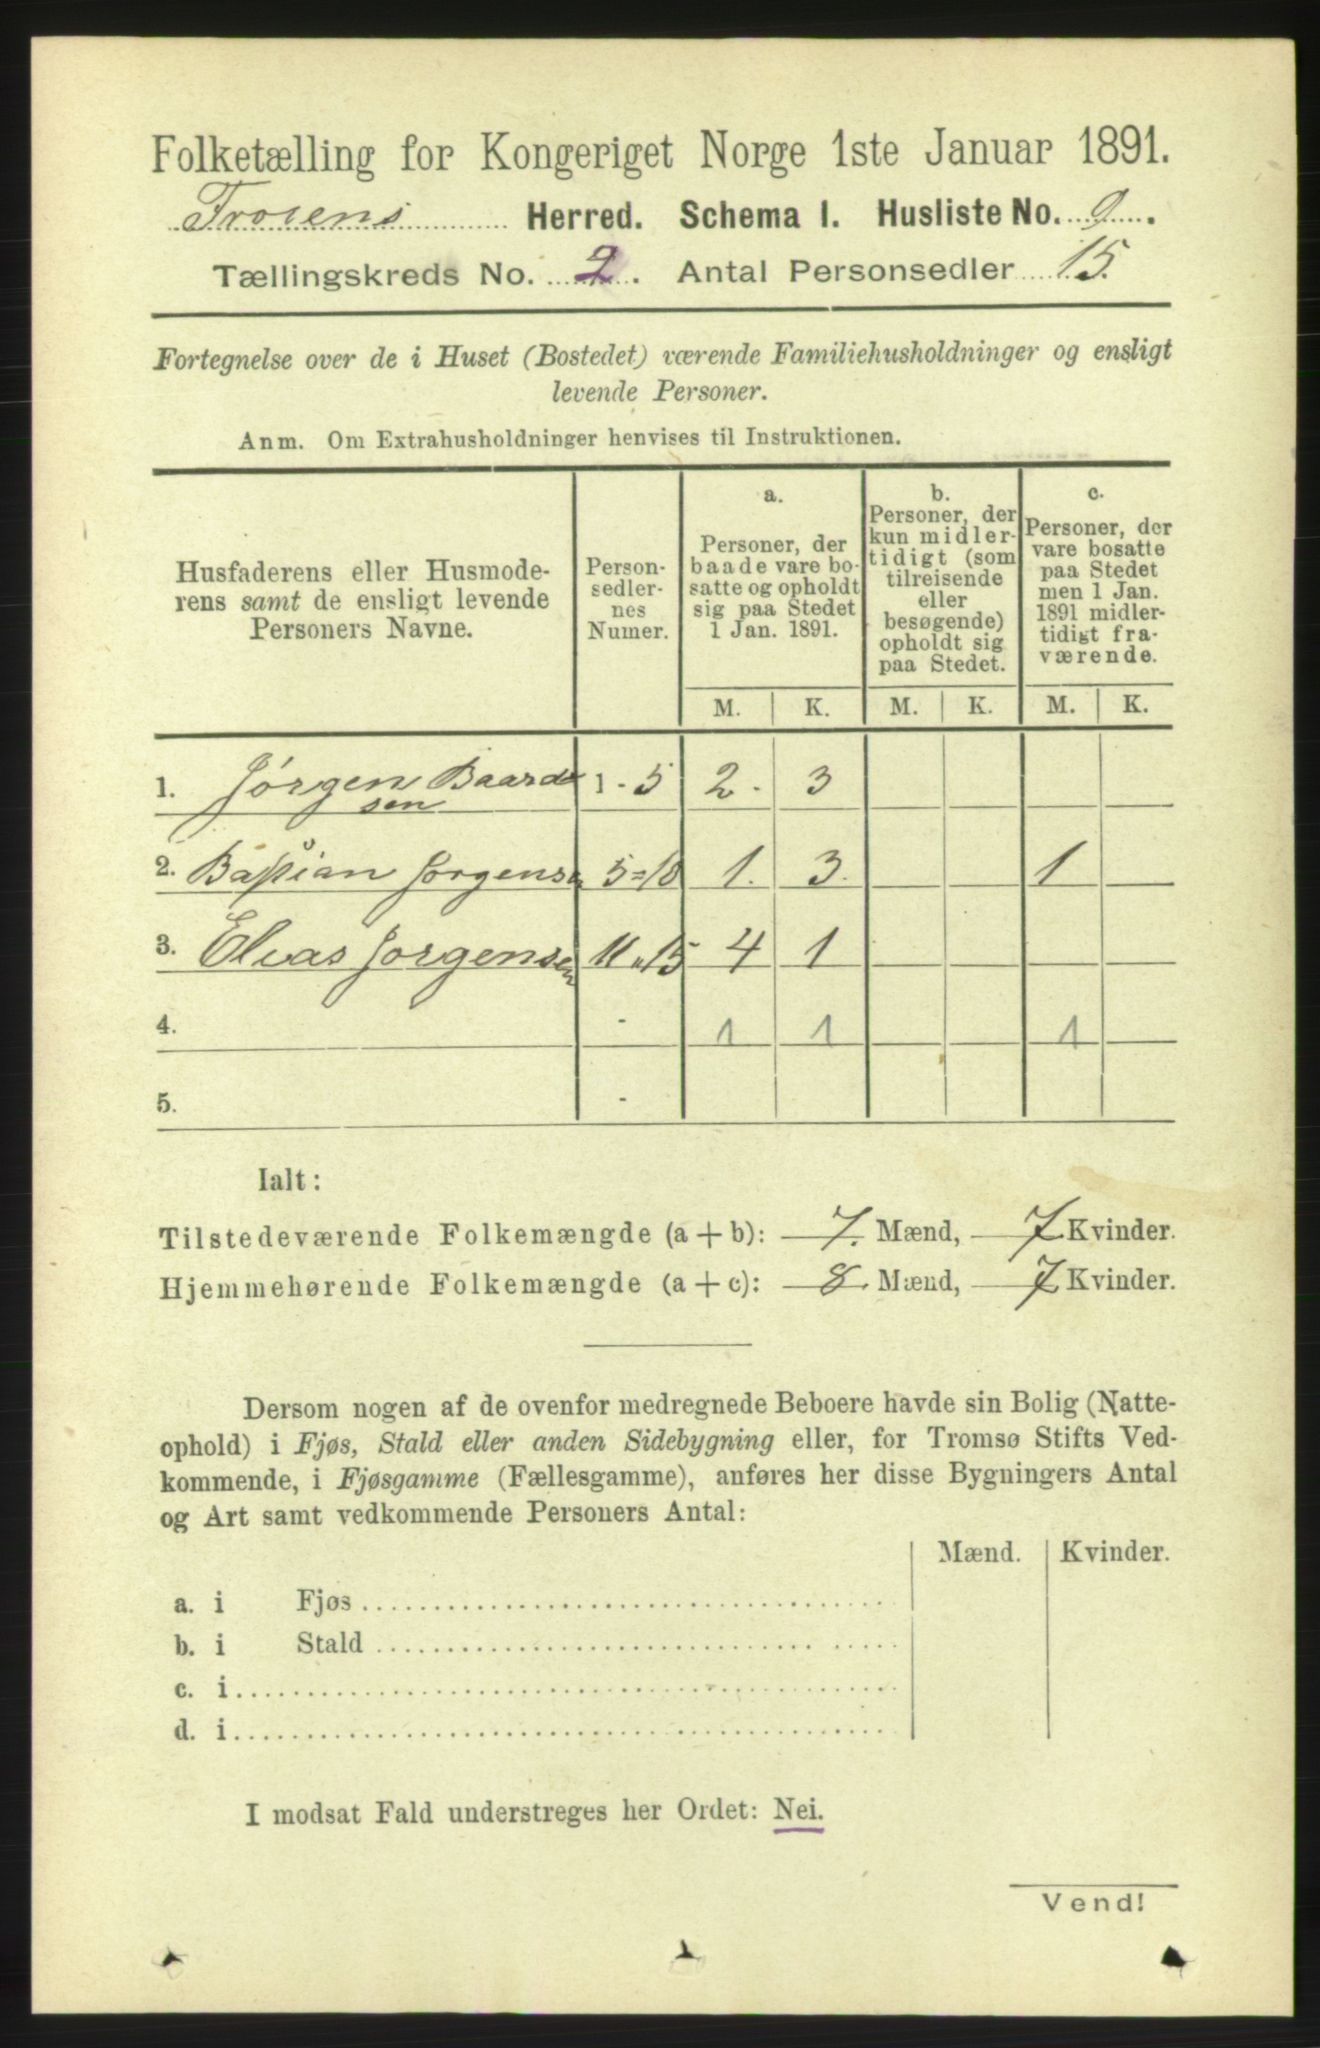 Folketælling for Kongeriget Norge 1ste Januar 1891.
Herred. Schema I. Husliste No. 9.
Tællingskreds No. 2. Antal Personsedler 15.
Fortegnelse over de i Huset (Bostedet) værende Familiehusholdninger og ensligt
levende Personer.
Anm. Om Extrahusholdninger henvises til Instruktionen.
Husfaderens eller Husmode-
rens samt de ensligt levende
Personers Navne.
Person-
sedler-
nes
Numer.
a.
Personer, der
baade vare bo-
satte og opholdt
sig paa Stedet
1 Jan. 1891.
b.
Personer, der
kun midler-
tidigt (som
tilreisende
eller
besøgende)
opholdt sig
paa Stedet.
c.
Personer, der
vare bosatte
paa Stedet
men 1 Jan.
1891 midler-
tidigt fra-
værende.
M. K. M. K. M. K.
1. Jørgen Baard 1 - 5 2. 3
sen
2. Bastian Jørgensen 5=10 1. 3. 1
3. Elias Jorgensen 11 - 15 4 1
4. - 1 1 1
5. -
Ialt:
Tilstedeværende Folkemængde (a + b): 7. Mænd, 7 Kvinder.
Hjemmehørende Folkemængde (a + c): 8. Mænd, 7 Kvinder.
Dersom nogen af de ovenfor medregnede Beboere havde sin Bolig (Natte-
ophold) i Fjøs, Stald eller anden Sidebygning eller, for Tromsø Stifts Ved-
kommende, i Fjøsgamme (Fællesgamme), anføres her disse Bygningers Antal
og Art samt vedkommende Personers Antal:
Mænd. Kvinder.
a. i Fjøs
b. i Stald
c. i
d. i
I modsat Fald understreges her Ordet: Nei.
Vend!